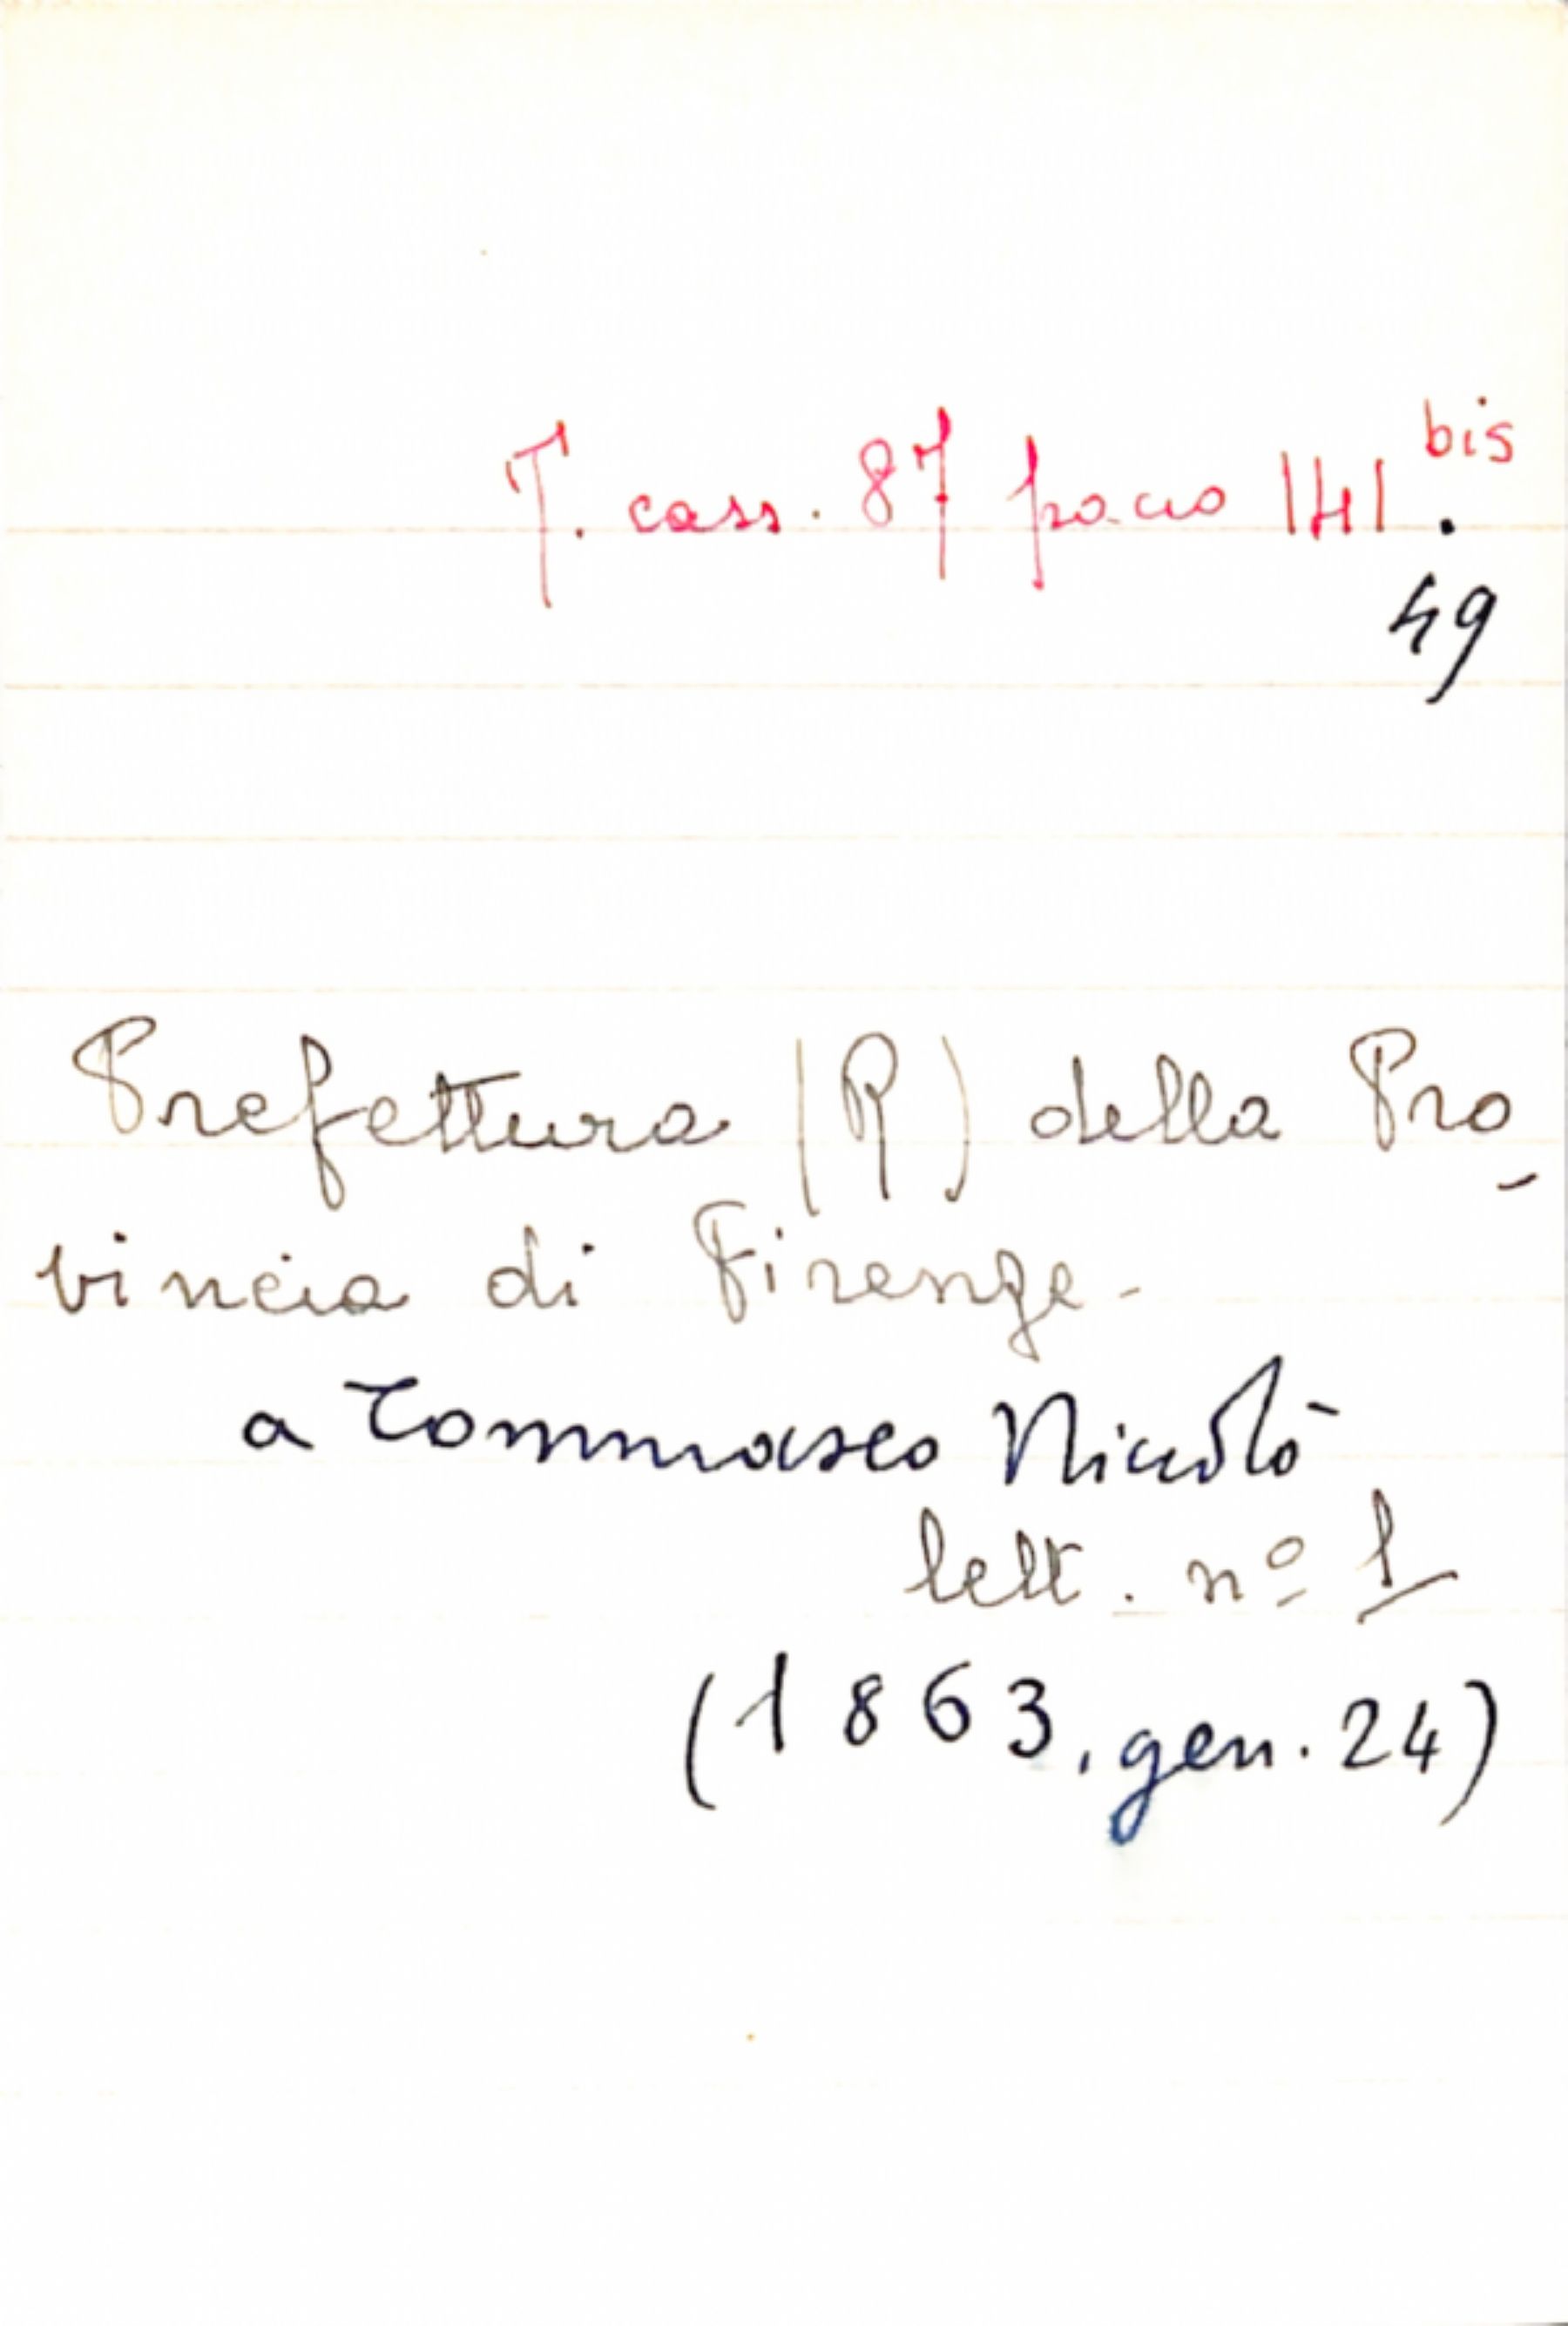 T. cass. 87 pacco 141 bis.
49
Prefettura (R) della Pro-
vincia di Firenze-
a Tommaseo Niccolò
lett. nº 1
(1863, gen. 24)